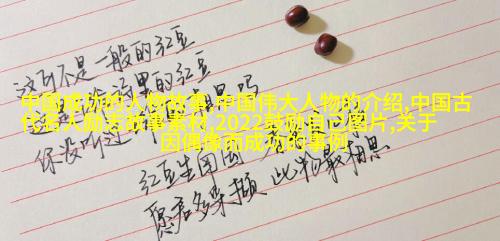 这可不是一般的红豆
中国成功的人物故事,中国伟大人物的介绍,中国古
代名人励志故事素材,2022鼓励自己图片,关于
因偶像而成功的事例
你没听过
吗
红豆生南国
愿君多采撷 此物最相思